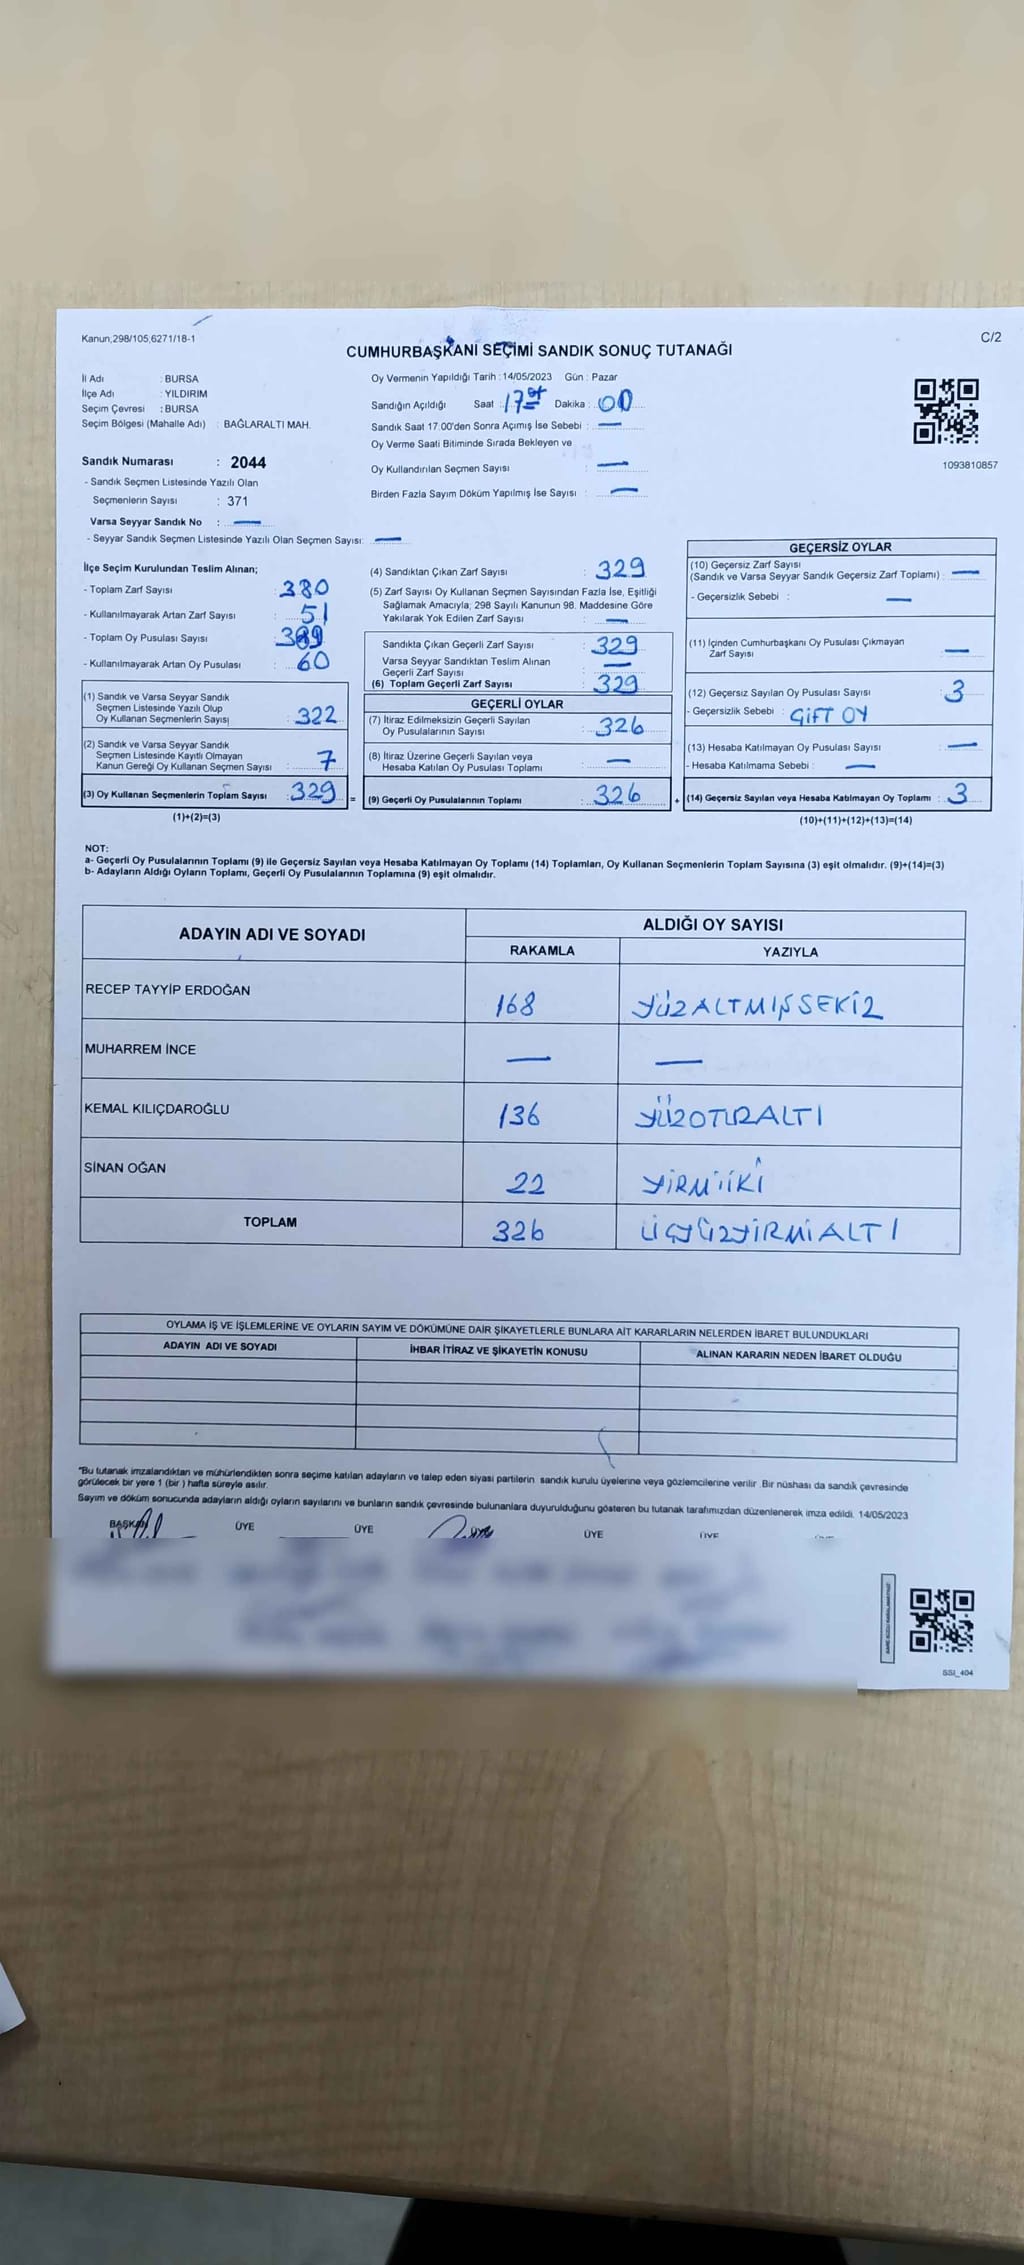 Kanun,298/105,6271/18-1
C/2
CUMHURBAŞKANI SEÇİMİ SANDIK SONUÇ TUTANAĞI
İl Adı : BURSA
İlçe Adı : YILDIRIM
Seçim Çevresi : BURSA
Seçim Bölgesi (Mahalle Adı) : BAĞLARALTI MAH.
Sandık Numarası : 2044
- Sandık Seçmen Listesinde Yazılı Olan
Seçmenlerin Sayısı : 371
Varsa Seyyar Sandık No : —
- Seyyar Sandık Seçmen Listesinde Yazılı Olan Seçmen Sayısı: —
Oy Vermenin Yapıldığı Tarih : 14/05/2023 Gün : Pazar
Sandığın Açıldığı Saat : 17 Dakika : 00
Sandık Saat 17.00'den Sonra Açımış İse Sebebi : —
Oy Verme Saati Bitiminde Sırada Bekleyen ve
Oy Kullandırılan Seçmen Sayısı : —
Birden Fazla Sayım Döküm Yapılmış İse Sayısı : —
1093810857
İlçe Seçim Kurulundan Teslim Alınan;
- Toplam Zarf Sayısı : 380
- Kullanılmayarak Artan Zarf Sayısı : 51
- Toplam Oy Pusulası Sayısı : 389
- Kullanılmayarak Artan Oy Pusulası : 60
(1) Sandık ve Varsa Seyyar Sandık
Seçmen Listesinde Yazılı Olup
Oy Kullanan Seçmenlerin Sayısı : 322
(2) Sandık ve Varsa Seyyar Sandık
Seçmen Listesinde Kayıtlı Olmayan
Kanun Gereği Oy Kullanan Seçmen Sayısı : 7
(3) Oy Kullanan Seçmenlerin Toplam Sayısı : 329 =
(1)+(2)=(3)
(4) Sandıktan Çıkan Zarf Sayısı : 329
(5) Zarf Sayısı Oy Kullanan Seçmen Sayısından Fazla İse, Eşitliği
Sağlamak Amacıyla; 298 Sayılı Kanunun 98. Maddesine Göre
Yakılarak Yok Edilen Zarf Sayısı : —
Sandıkta Çıkan Geçerli Zarf Sayısı : 329
Varsa Seyyar Sandıktan Teslim Alınan
Geçerli Zarf Sayısı : —
(6) Toplam Geçerli Zarf Sayısı : 329
GEÇERLİ OYLAR
(7) İtiraz Edilmeksizin Geçerli Sayılan
Oy Pusulalarının Sayısı : 326
(8) İtiraz Üzerine Geçerli Sayılan veya
Hesaba Katılan Oy Pusulası Toplamı : —
(9) Geçerli Oy Pusulalarının Toplamı : 326 +
GEÇERSİZ OYLAR
(10) Geçersiz Zarf Sayısı
(Sandık ve Varsa Seyyar Sandık Geçersiz Zarf Toplamı) : —
- Geçersizlik Sebebi : —
(11) İçinden Cumhurbaşkanı Oy Pusulası Çıkmayan
Zarf Sayısı : —
(12) Geçersiz Sayılan Oy Pusulası Sayısı : 3
- Geçersizlik Sebebi : ÇİFT OY
(13) Hesaba Katılmayan Oy Pusulası Sayısı : —
- Hesaba Katılmama Sebebi : —
(14) Geçersiz Sayılan veya Hesaba Katılmayan Oy Toplamı : 3
(10)+(11)+(12)+(13)=(14)
NOT:
a- Geçerli Oy Pusulalarının Toplamı (9) ile Geçersiz Sayılan veya Hesaba Katılmayan Oy Toplamı (14) Toplamları, Oy Kullanan Seçmenlerin Toplam Sayısına (3) eşit olmalıdır. (9)+(14)=(3)
b- Adayların Aldığı Oyların Toplamı, Geçerli Oy Pusulalarının Toplamına (9) eşit olmalıdır.
ADAYIN ADI VE SOYADI ALDIĞI OY SAYISI
RAKAMLA YAZIYLA
RECEP TAYYİP ERDOĞAN 168 YÜZALTMIŞSEKİZ
MUHARREM İNCE — —
KEMAL KILIÇDAROĞLU 136 YÜZOTUZALTI
SİNAN OĞAN 22 YİRMİİKİ
TOPLAM 326 ÜÇYÜZYİRMİALTI
OYLAMA İŞ VE İŞLEMLERİNE VE OYLARIN SAYIM VE DÖKÜMÜNE DAİR ŞİKAYETLERLE BUNLARA AİT KARARLARIN NELERDEN İBARET BULUNDUKLARI
ADAYIN ADI VE SOYADI İHBAR İTİRAZ VE ŞİKAYETİN KONUSU ALINAN KARARIN NEDEN İBARET OLDUĞU
"Bu tutanak imzalandıktan ve mühürlendikten sonra seçime katılan adayların ve talep eden siyasi partilerin sandık kurulu üyelerine veya gözlemcilerine verilir. Bir nüshası da sandık çevresinde
görülecek bir yere 1 (bir ) hafta süreyle asılır.
Sayım ve döküm sonucunda adayların aldığı oyların sayılarını ve bunların sandık çevresinde bulunanlara duyurulduğunu gösteren bu tutanak tarafımızdan düzenlenerek imza edildi. 14/05/2023
BAŞKAN ÜYE ÜYE ÜYE ÜYE ÜYE
SSI_404